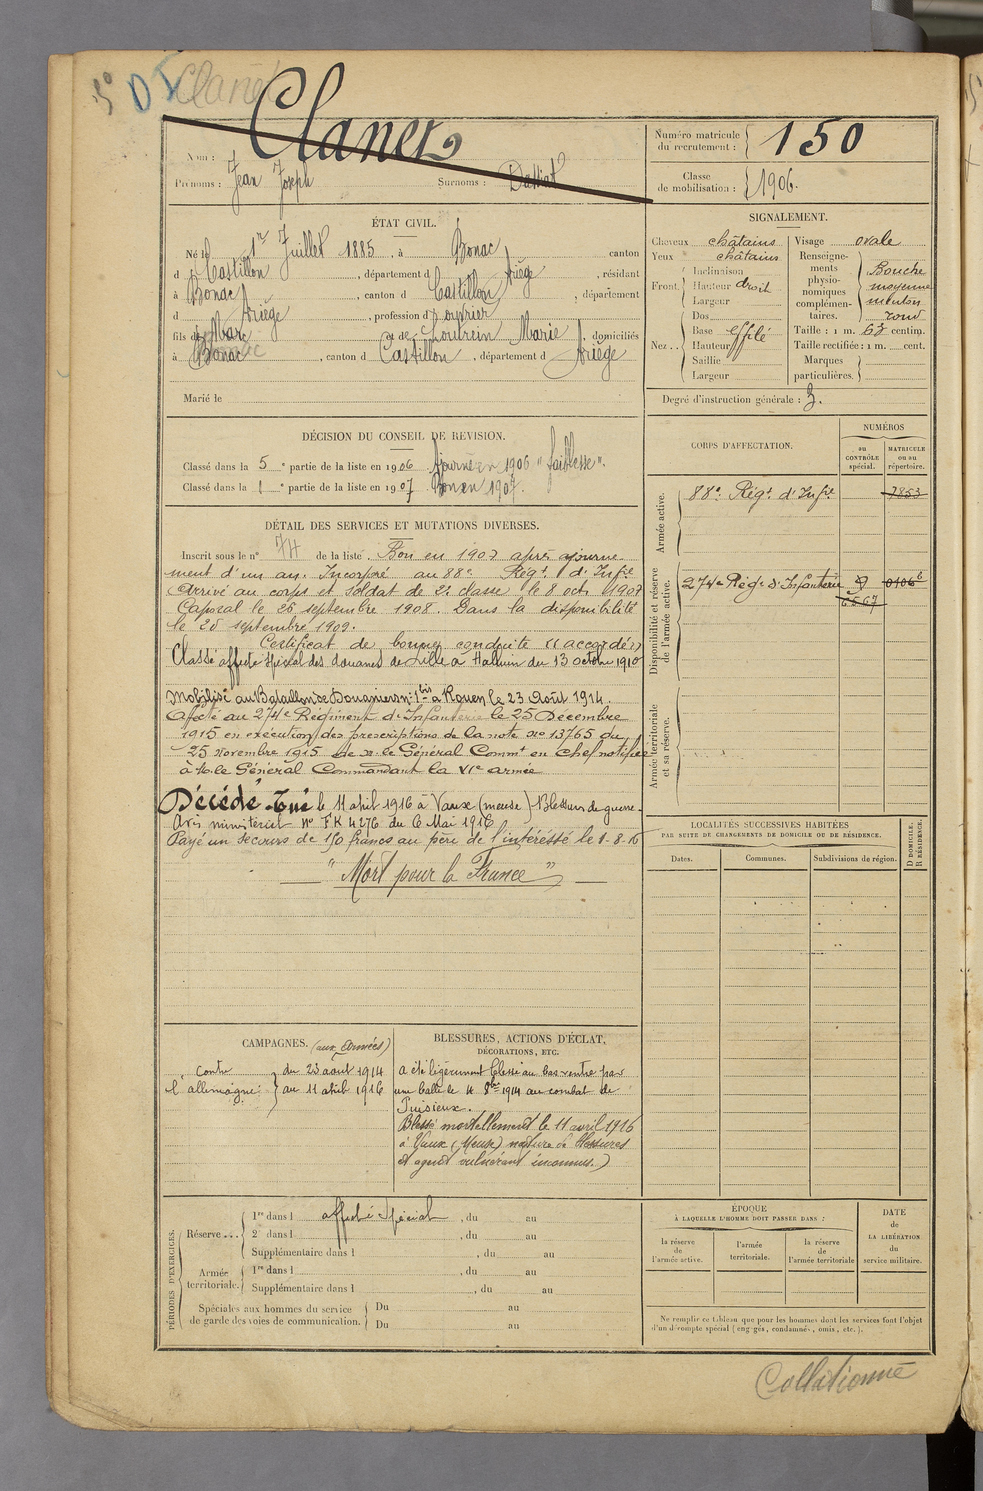 5° D
Clanet
Nom : Clanet
Prénoms : Jean Joseph Surnoms :
Numéro matricule du recrutement : 150
Classe de mobilisation : 1906.
ÉTAT CIVIL.
Né le 1er Juillet 1885, à Bonac canton
d Castillon, département d Ariège, résidant
à Bonac, canton d Castillon, département
d Ariège, profession d
fils de Marc et de Marie, domiciliés
à Bonac, canton d Castillon, département d Ariège
Marié le
SIGNALEMENT.
Cheveux châtains
Yeux châtains
Front Inclinaison
Hauteur droit
Largeur
Nez Dos
Base effilé
Hauteur
Saillie
Largeur
Visage ovale
Renseignements physionomiques complémentaires. Bouche moyenne menton rond
Taille : 1 m. 63 centim.
Taille rectifiée : 1 m. cent.
Marques particulières.
Degré d'instruction générale : 3.
DÉCISION DU CONSEIL DE REVISION.
Classé dans la 5e partie de la liste en 1906 Ajourné en 1906 "faiblesse".
Classé dans la 1e partie de la liste en 1907 Bon en 1907.
DÉTAIL DES SERVICES ET MUTATIONS DIVERSES.
Inscrit sous le n° 74 de la liste. Bon en 1907 après ajourne
ment d'un an. Incorporé au 88e Régt d'Infie
Arrivé au corps et soldat de 2e classe le 8 octe 1907
Caporal le 26 septembre 1908. Dans la disponibilité
le 28 septembre 1909.
Certificat de bonne conduite "accordé"
Classé affecté spécial des douanes de Lille à Halluin du 13 octobre 1910
Mobilisé au Bataillon de Douaniers n° 1 bis à Rouen le 23 Août 1914.
Afecté au 274e Régiment d'Infanterie le 25 Décembre
1915 en exécution des prescriptions de la note no 13765 du
25 Novembre 1915 de m. le Général Commt en Chef notifiée
à M. le Général Commandant la VIe armée
Décédé. Tué le 11 avril 1916 à Vaux (meuse) Blessures de guerre.
Avis ministériel n° FK 4276 du 6 Mai 1916
Payé un secours de 150 francs au père de l'intéréssé le 1-8-16
"Mort pour la France"
CORPS D'AFFECTATION.
NUMÉROS
au CONTRÔLE spécial.
MATRICULE ou au répertoire.
Armée active.
88e Régt d'Infie 7853
Disponibilité et réserve de l'armée active.
274e Régt d'Infanterie
Armée territoriale et sa réserve.
LOCALITÉS SUCCESSIVES HABITÉES
PAR SUITE DE CHANGEMENTS DE DOMICILE OU DE RÉSIDENCE.
Dates. Communes. Subdivisions de région. D DOMICILE. R RÉSIDENCE.
CAMPAGNES. (aux Armées)
contre l'allemagne
du 23 aout 1914
au 11 avril 1916
BLESSURES, ACTIONS D'ÉCLAT,
DÉCORATIONS, ETC.
A été légèrement blessé au bas ventre par
une balle le 4 8bre 1914 au combat de
Puisieux.
Blessé mortellement le 11 avril 1916
à Vaux (Meuse) nature de blessures
et agent vulnérant inconnus.)
PÉRIODES D'EXERCICES.
Réserve...
1re dans l affecté spécial, du au
2e dans l , du au
Supplémentaire dans l , du au
Armée territoriale.
1re dans l , du au
Supplémentaire dans l , du au
Spéciales aux hommes du service de garde des voies de communication.
Du au
Du au
ÉPOQUE
À LAQUELLE L'HOMME DOIT PASSER DANS :
la réserve de l'armée active.
l'armée territoriale.
la réserve de l'armée territoriale
DATE de LA LIBÉRATION du service militaire.
Ne remplir ce tableau que pour les hommes dont les services font l'objet
d'un décompte spécial (engagés, condamnés, omis, etc.).
Collationné